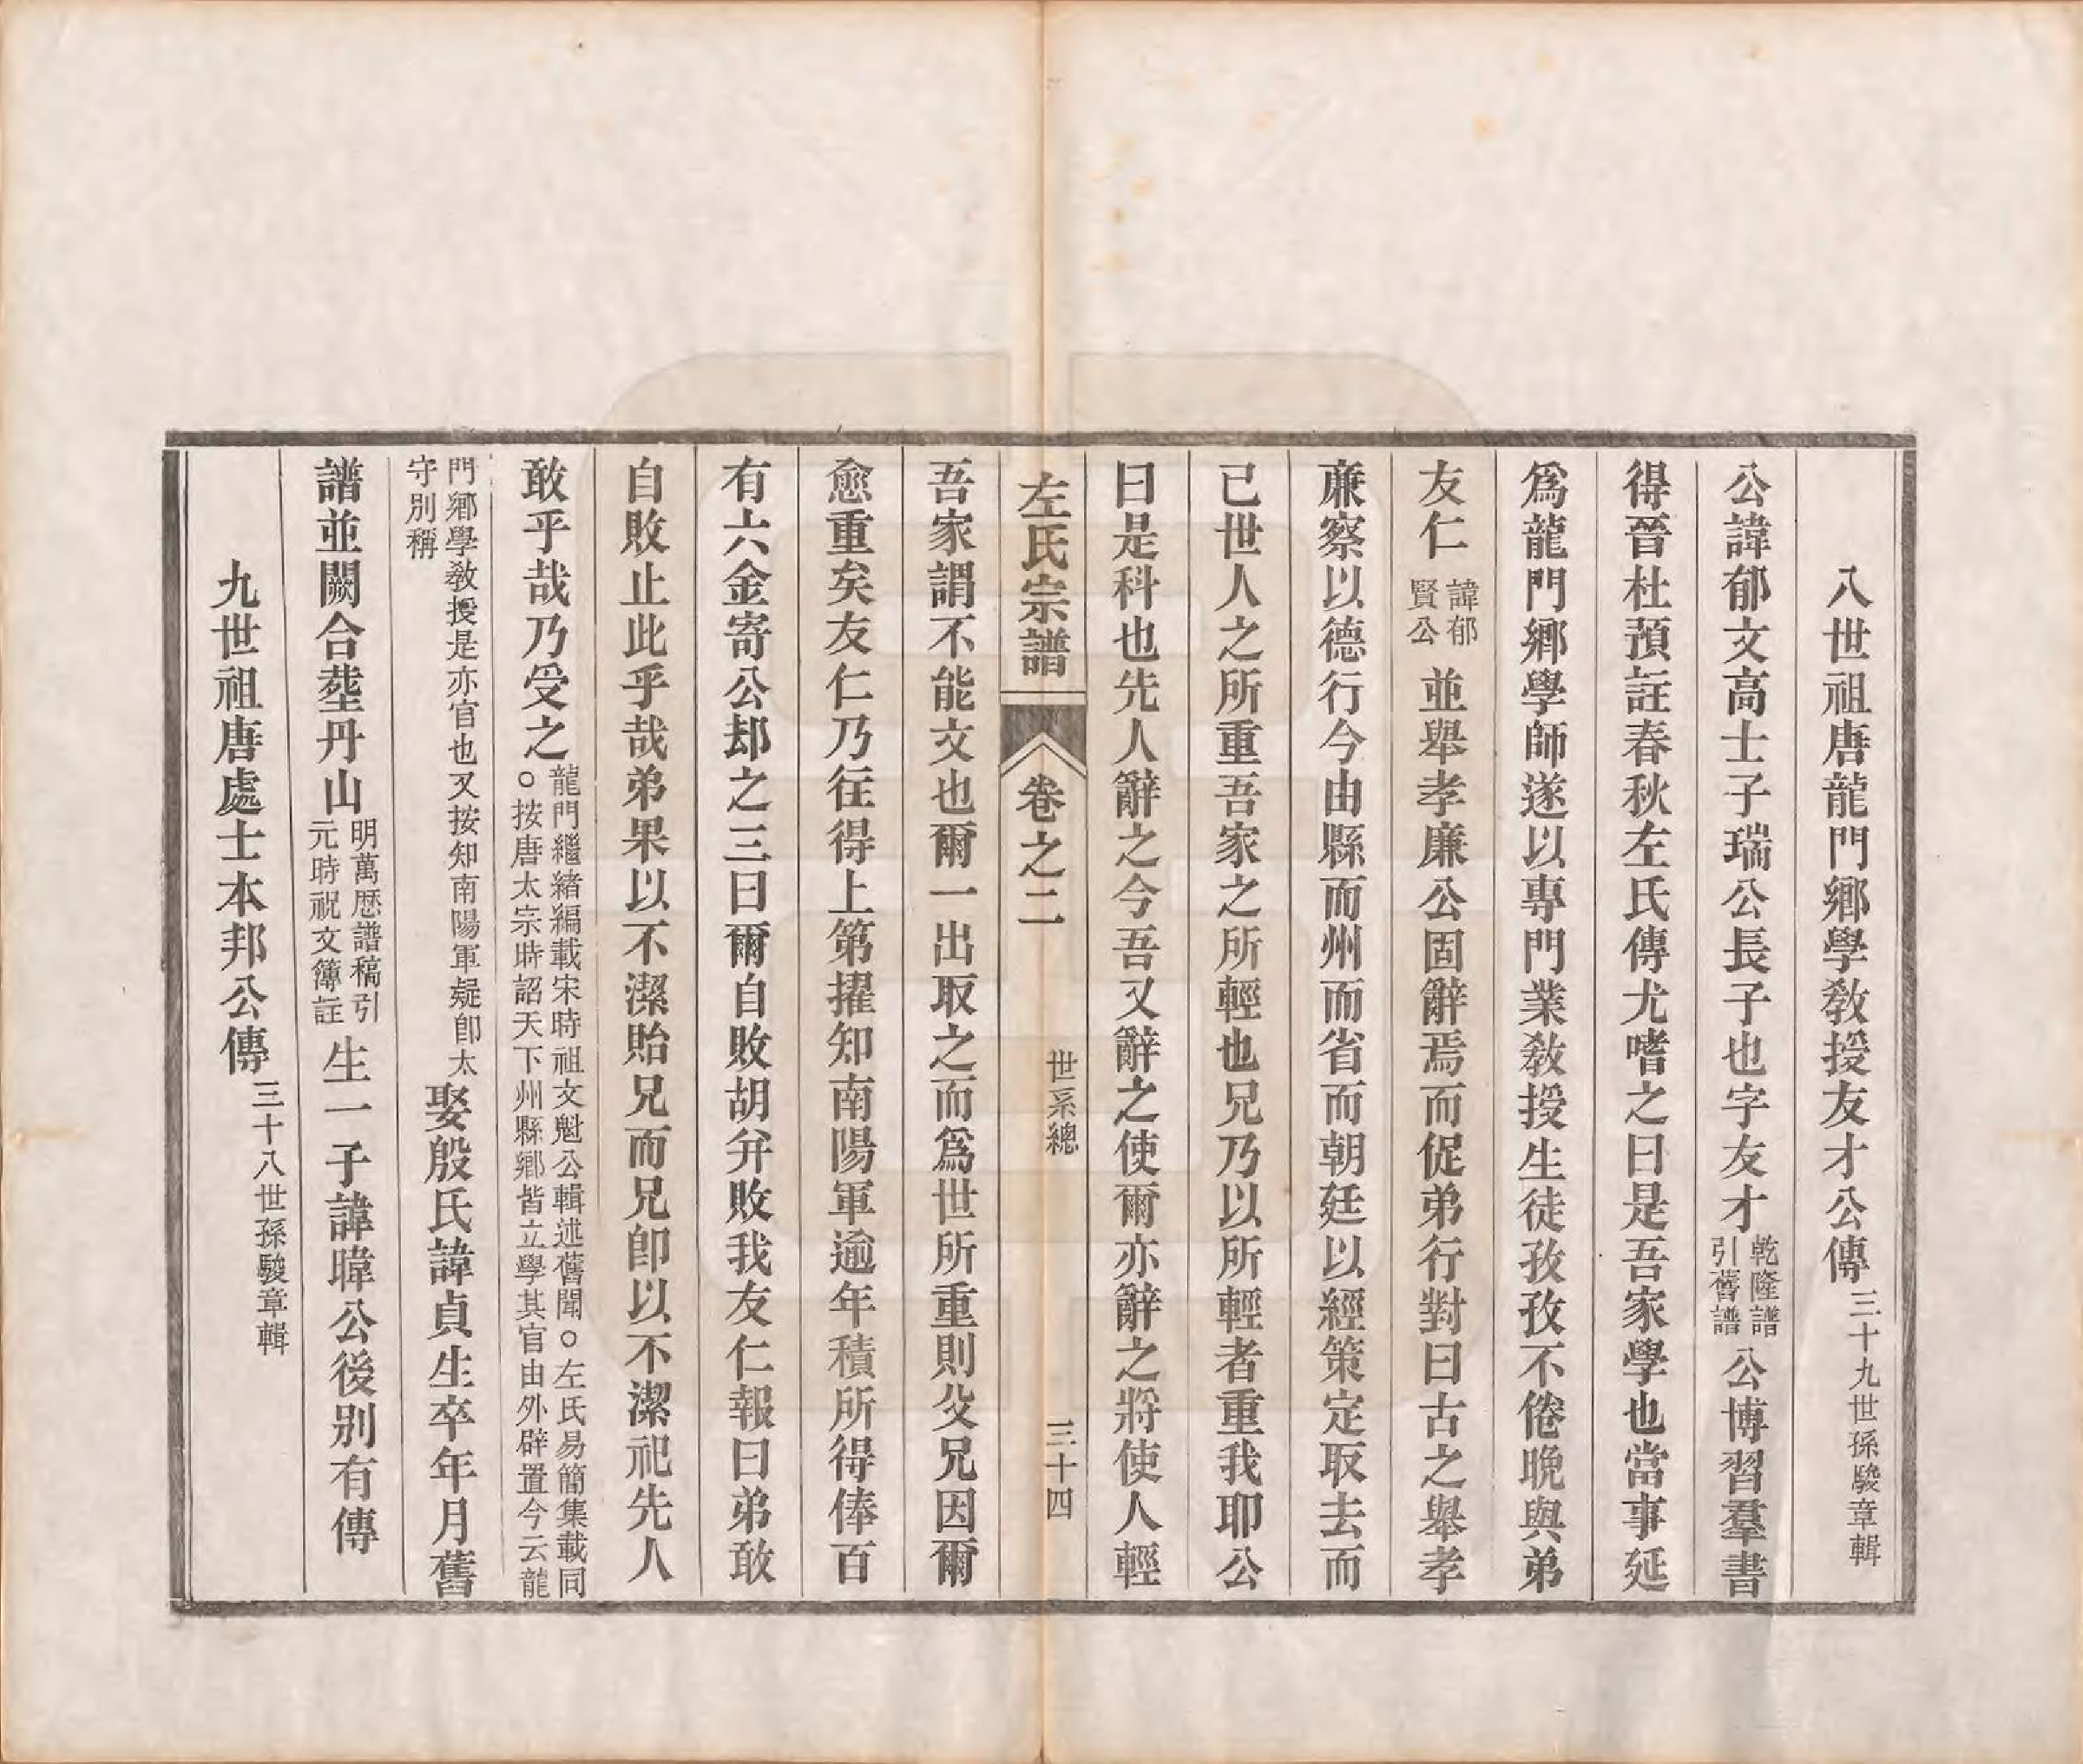 八世祖唐龍門鄉學教授友才公傳三十九世孫駿章輯
公諱郁文高士子瑞公長子也字友才乾隆譜引舊譜公博習羣書
得晉杜預註春秋左氏傳尤嗜之曰是吾家學也當事延
爲龍門鄉學師遂以專門業教授生徒孜孜不倦晚與弟
友仁諱郁賢公並舉孝廉公固辭焉而促弟行對曰古之舉孝
廉察以德行今由縣而州而省而朝廷以經策定取去而
已世人之所重吾家之所輕也兄乃以所輕者重我耶公
曰是科也先人辭之今吾又辭之使爾亦辭之將使人輕
左氏宗譜 卷之二 世系總 三十四
吾家謂不能文也爾一出取之而爲世所重則父兄因爾
愈重矣友仁乃往得上第擢知南陽軍逾年積所得俸百
有六金寄公却之三曰爾自敗胡弁敗我友仁報曰弟敢
自敗止此乎哉弟果以不潔貽兄而兄卽以不潔祀先人
敢乎哉乃受之龍門繼緒編載宋時祖文魁公輯述舊聞○左氏易簡集載同○按唐太宗時詔天下州縣鄉皆立學其官由外辟置今云龍
門鄉學教授是亦官也又按知南陽軍疑卽太守別稱娶殷氏諱貞生卒年月舊
譜並闕合塟丹山明萬厯譜稿引元時祝文簿註生一子諱暐公後別有傳
九世祖唐處士本邦公傳三十八世孫駿章輯